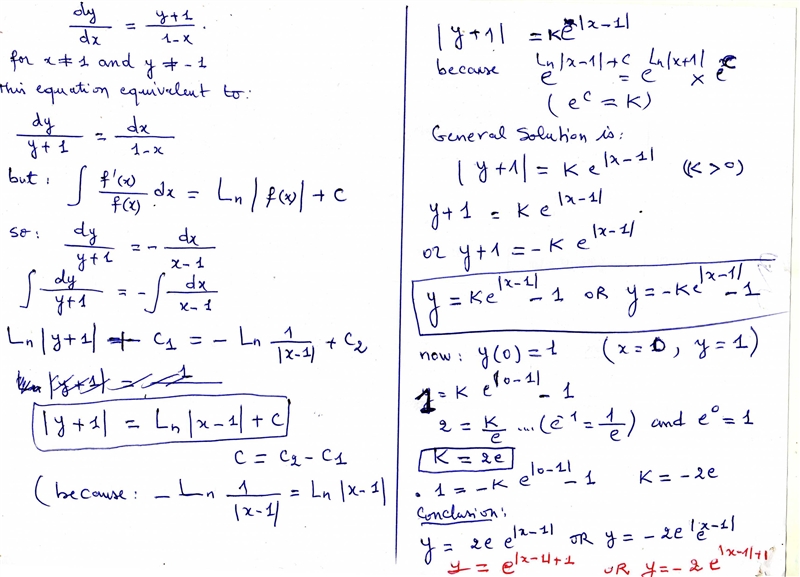 dy/dx = y+1/1-x .
for x ≠ 1 and y ≠ -1
this equation equivalent to:
dy/y+1 = dx/1-x
but : ∫ f'(x)/f(x) dx = Ln |f(x)| + C
so : dy/y+1 = - dx/x-1
∫ dy/y+1 = - ∫ dx/x-1
Ln |y+1| + C₁ = - Ln 1/|x-1| + C₂
|y+1| = Ln |x-1| + C
C = C₂ - C₁
(because : - Ln 1/|x-1| = Ln |x-1|
|y+1| = K e^|x-1|
because e^(Ln|x-1|+C) = e^(Ln|x+1|) × e^C
(e^C = K)
General Solution is :
|y+1| = K e^|x-1| (K > 0)
y+1 = K e^|x-1| .
or y+1 = -K e^|x-1|
y = K e^|x-1| - 1 OR y = -K e^|x-1| - 1
now : y(0) = 1 (x = 0 , y = 1)
1 = K e^|0-1| - 1
2 = K/e ... (e^-1 = 1/e) and e^0 = 1
K = 2e
. 1 = -K e^|0-1| - 1 K = -2e
Conclusion :
y = 2e e^|x-1| OR y = -2e e^|x-1|
y = e^|x-1|+1 OR y = -2 e^|x-1|+1